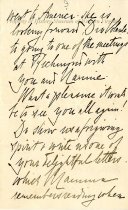 went to America. She is
looking forward
to going to one of the meetings
at Richmond with
you and Mamie
What a pleasure it would
be to see you all again!
Do show us a forgiving
spirit & write us one of
your delightful letters
which Mamma
remembers reading when